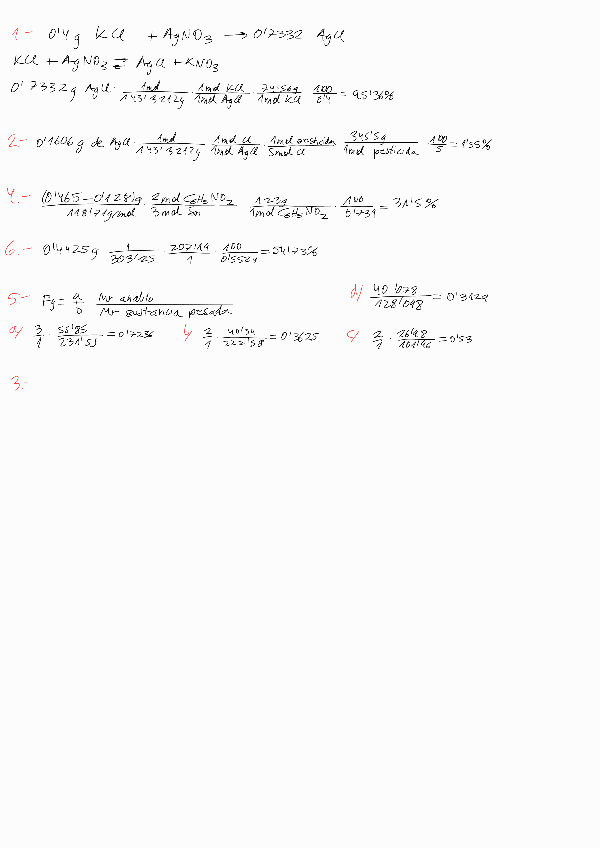 1.- 0'4 g KCl + AgNO3 → 0'7332 AgCl
KCl + AgNO3 ⇄ AgCl + KNO3
0'7332 g AgCl · 1mol/143'3212g · 1mol KCl/1mol AgCl · 74'56g/1mol KCl · 100/0'4 = 95'36%
2.- 0'1606 g de AgCl · 1mol/143'3212g · 1mol Cl/1mol AgCl · 1mol pesticida/5mol Cl · 345'5g/1mol pesticida · 100/5 = 1'55%
4.- (0'465-0'128)g/118'71g/mol · 2mol C6H5NO2/3mol Sn · 123g/1mol C6H5NO2 · 100/0'739 = 31'5%
6.- 0'4425g · 1/303'25 · 207'19/1 · 100/0'5524 = 54'73%
5.- Fg = a/b · Mr analito/Mr sustancia pesada
d) 40'078/128'098 = 0'3129
a) 3/1 · 55'85/231'55 = 0'7236
b) 2/1 · 40'34/222'58 = 0'3625
c) 2/1 · 26'98/101'96 = 0'53
3.-